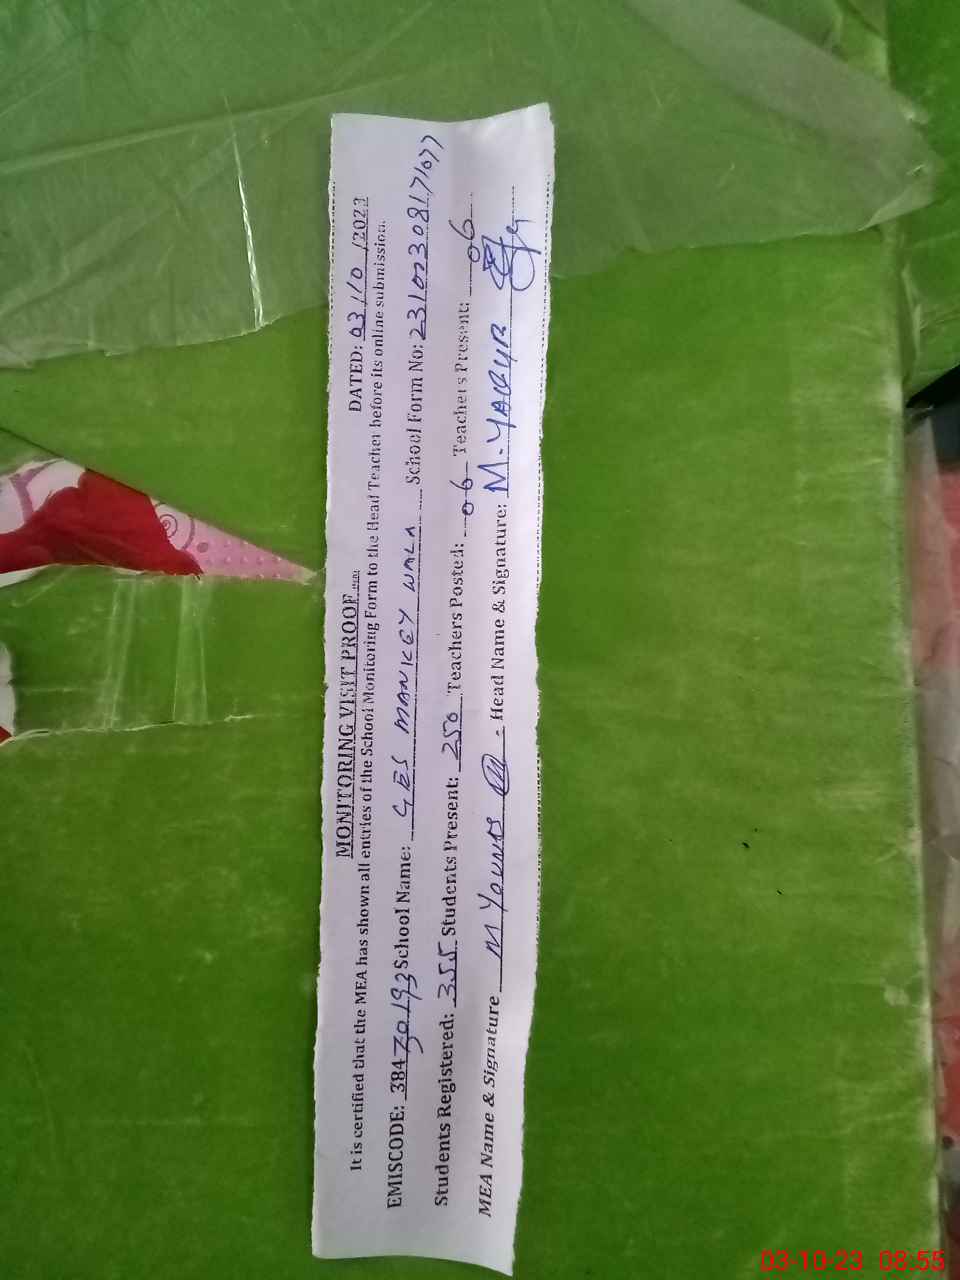 MONITORING VISIT PROOF
DATED: 03/10/2023
It is certified that the MEA has shown all entries of the School Monitoring Form to the Head Teacher before its online submission.
EMISCODE: 38430193 School Name: GES MANKEY WALA School Form No: 23102308171077
Students Registered: 355 Students Present: 250 Teachers Posted: 06 Teachers Present: 06
MEA Name & Signature M YOUNAS Head Name & Signature: M. YAQUB
03-10-23 08:55